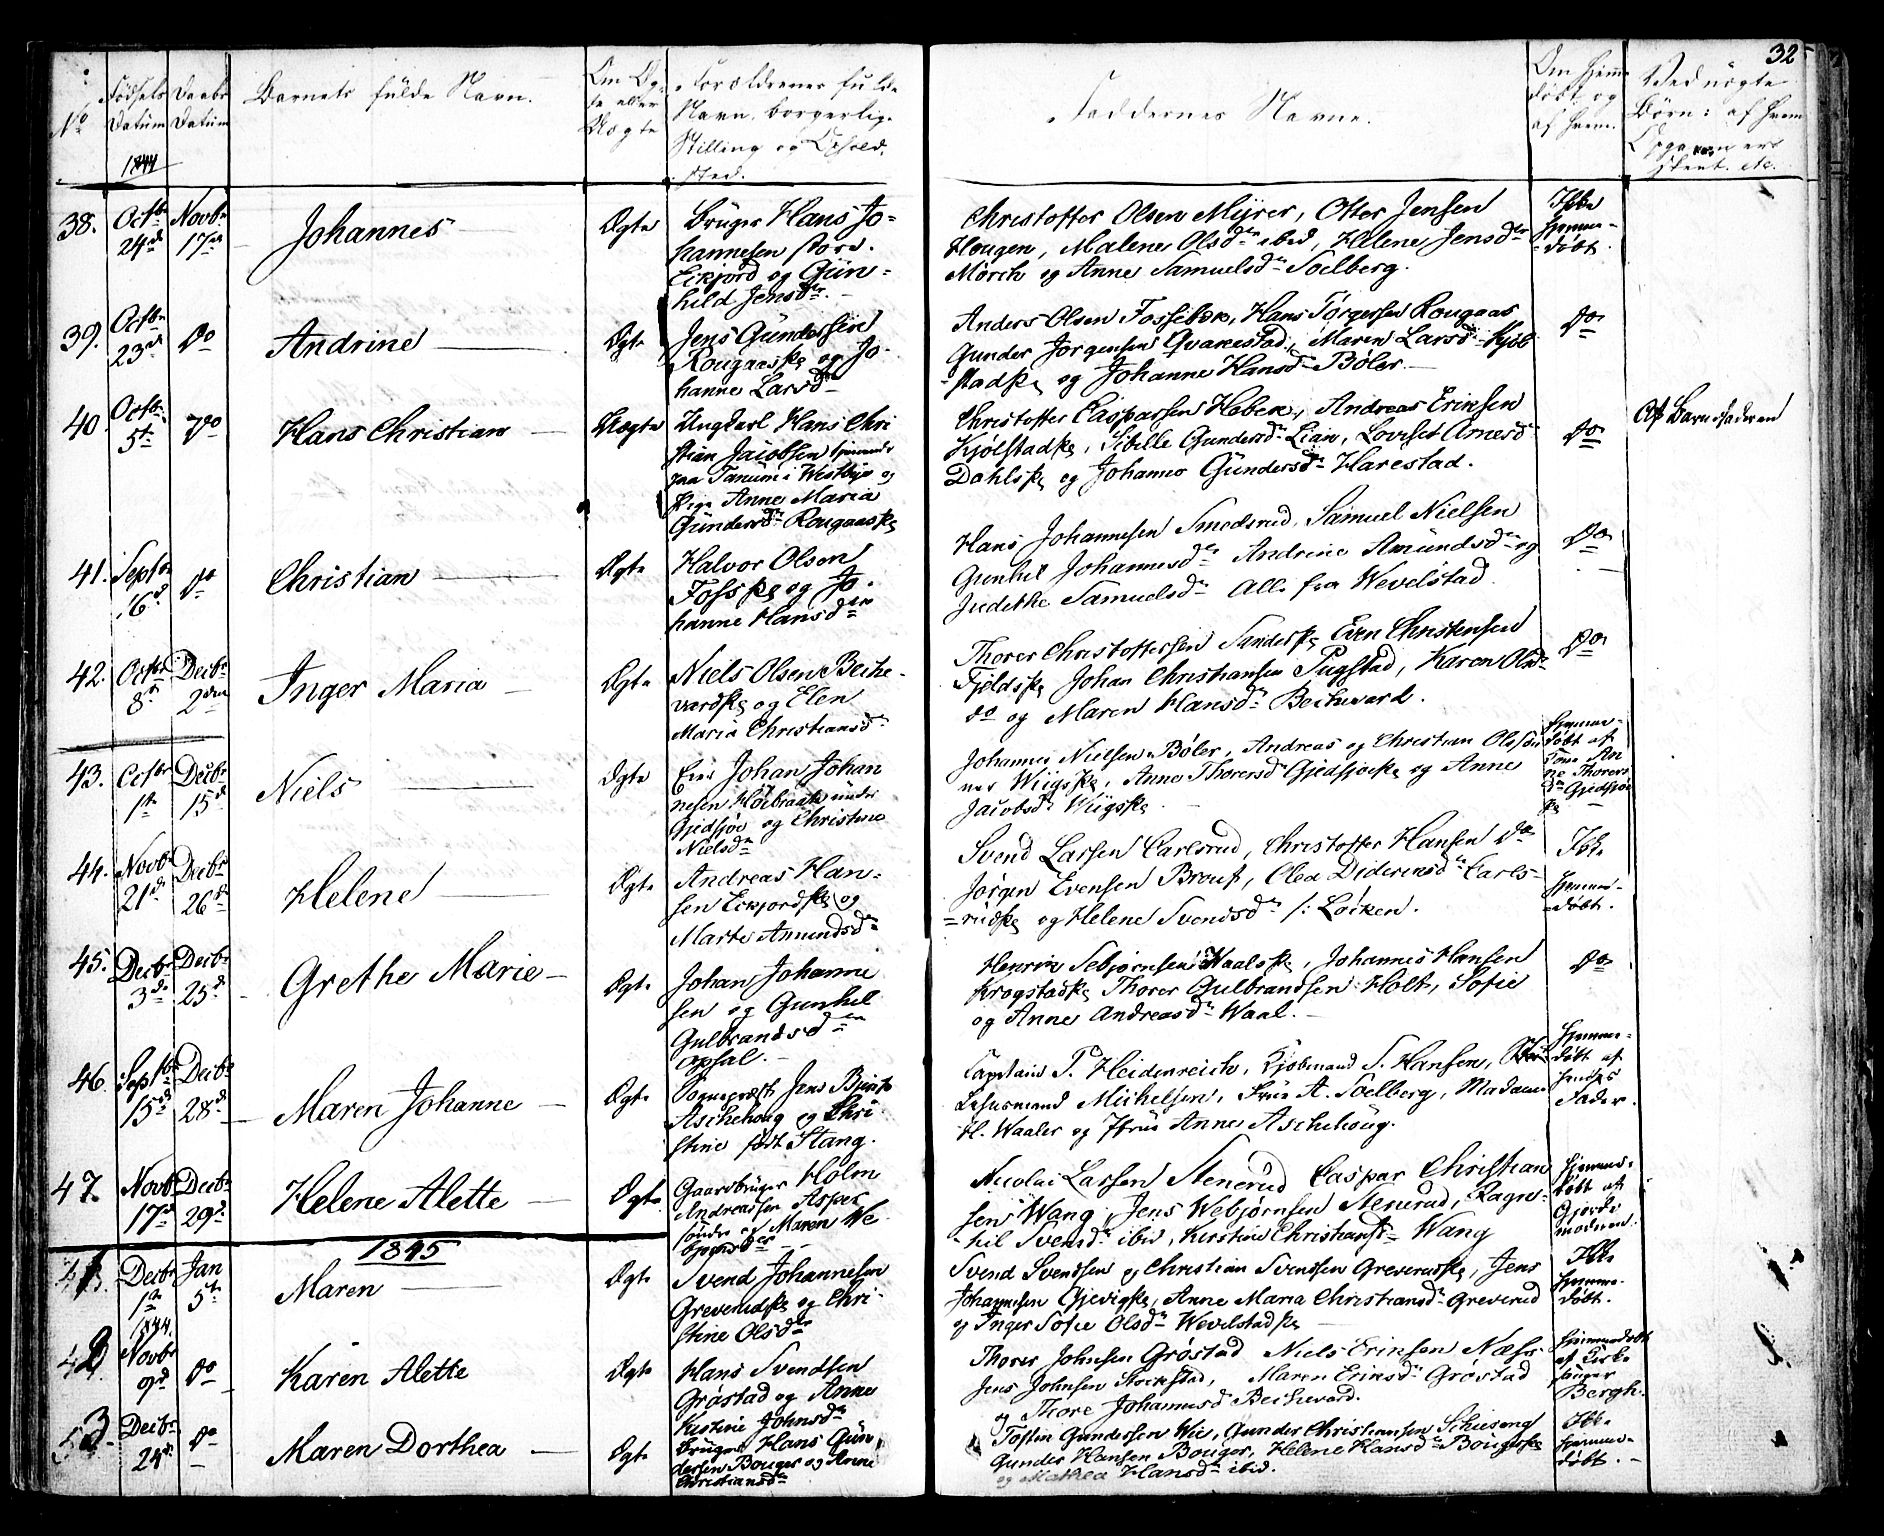 32
No
Fødsels Datum
Daabs Datum
Barnets fulde Navn.
Om Ægte eller Uægte
Forældrenes fulde
Navn, borgerlige
Stilling og Opholds
sted.
Faddernes Navne.
Om hjemmedøbt og af hvem.
Ved uægte
Børn: af hvem
1844
38. Octbr 24de Novbr 17de Johannes Ægte
Bruger Hans Jo-
hannesen store
Eckjord og Gun-
hild Jensdtr.
Christoffer Olsen Myrer, Otter Jensen
Hougen, Malene Olsdtr ibid, Helene Jensdtr
Mørch og Anne Samuelsdtr Solberg.
Ikke
hjemme-
døbt.
39. Octbr 23de Do Andrine Ægte
Jens Gundersen
Rougaaske og Jo-
hanne Larsdtr
Anders Olsen Fossebek, Hans Jørgensen Rougaas
Gunder Jørgensen Qvakestad, Maren Larsd. Kjøl-
stadske og Johanne Hansdtr Bøler.
Do
40. Octbr 5te Do Hans Christian Uægte
Ungkarl Hans Chri
stian Jacobsen tjenende
paa Tanum i Westbye og
Pige Anne Maria
Gundersdtr Rougaaske
Christoffer Caspersen Heben, Andreas Eriksen
Kjølstadske, Sibille Gundersdtr Lian, Loviset Arnesd
Dahlske og Johanne Gundersdtr Harestad.
Do
Af Barnefaderen
41. Septbr 16d Do Christian Ægte
Halvor Olsen
Fosske og Jo-
hanne Hansdtr
Hans Johannesen Smedsrud, Samuel Nielsen
Gunhil Johannesdtr Andrine Amundsdtr og
Judithe Samuelsdtr Alle fra Wevelstad.
Do
42. Octbr 8de Decbr 2den Inger Maria Ægte
Niels Olsen Beche-
vardske og Elen
Maria Christiansdtr
Thorer Christoffersen Sanderske Even Christensen
Fjeldske Johan Christiansen Pugstad, Karen Olsd-
do og Maren Hansdtr Beckevard.
Do
43. Octbr 1te Decbr 15d Niels Ægte
Eier Johan Johan
nesen Høebraaten under
Gjedsjøe og Christine
Nielsdtr
Johannes Nielsen Bøler, Andreas og Christian Olssøn
ner Wiigske, Anne Thorersdtr Gjedsjøeske og Anne
Jacobsdtr Wiigske.
hjemme-
døbt af
Anne Thorers
dtr Gjedsjøe
ske
44. Novbr 21de Decbr 26de Helene Ægte
Andreas Han-
sen Eckjordske og
Marte Amundsdtr
Svend Larsen Carlsrud, Christoffer Hansen Do
Jørgen Evensen Broust, Olea Didriksdtr Carls-
rudske og Helene Svendsdtr /: Løcken.
Ikke
hjemme-
døbt.
45. Decbr 3de Decbr 25d Grethe Marie Ægte
Johan Johanne
sen og Gunhil
Gulbrandsdtr
Opsal.
Henrik Sebjørnsen Waalske, Johannes Hansen
Krogstadske Thorer Gulbrandsen Holt, Sofie
og Anne Andreasdtr Waal.
Do
46. Septbr 15de Decbr 28d Maren Johanne Ægte
Sognepræst Jens Bjerch
Aschehoug og Chri-
stine født Stang.
Captain P. Heidenreich, Kjøbmand S. Hansen,
Lehnsmand Michelsen, Frue A. Solberg, Madame
H. Waaler og Frue Anne Aschehoug.
hjemme-
døbt af
Fader.
47. Novbr 17d Decbr 29d Helene Alette Ægte
Gaardbruger Holm
Andreassen Asper
søndre og Maren We
Nicolai Larsen Stenerud Caspar Christian
sen Wang, Jens Webjørnsen Stenerud, Ragn-
hil Svensdtr ibid, Kirstine Christiansdtr Wang
hjemme-
døbt af
Gjorde
modren.
1845
1. Decbr 1te 1844. Jan 5te Maren Ægte
Svend Johannesen
Greverudske og Chri-
stine Olsdtr
Svend Svendsen og Christian Svendsen Greverudske, Jens
Johannesen Gjevigske, Anne Maria Christiansdtr Greverud
og Inger Sofie Olsdtr Wevelstadske
Ikke
hjemme-
døbt.
2. Novbr 9d Do Karen Alette Ægte
Hans Svendsen
Grøstad og Anne
Kirstine Johnsdtr
Thorer Johnsen Grøstad Niels Eriksen Næss
Jens Johnsen Stockstad, Maren Eriksdtr Grøstad
og Thore Johannesd Beckevard.
hjemmedøbt
af Kirke
sanger
Bergh.
3. Decbr 24de Do Maren Dorthea Ægte
Bruger Hans Gun
dersen Bouger og Anne
Christiansdtr
Tosten Gundersen Wie, Gunder Christiansen Schieseng
Gunder Hansen Bouger, Helene Hansdtr Bougerske
og Mathea Hansdtr ibid.
Ikke
hjemme-
døbt.